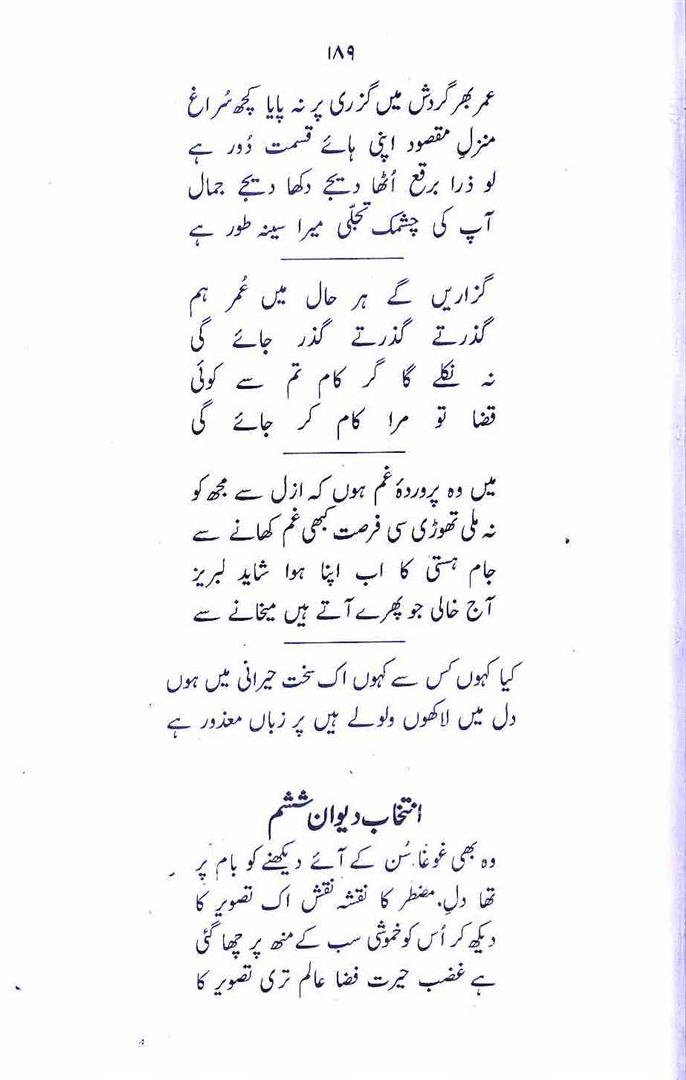 ۱۸۹
عمر بھر گردش میں گزری پر نہ پایا کچھ سُراغ
منزلِ مقصود اپنی ہائے قسمت دُور ہے
لو ذرا برقع اُٹھا دیجے دکھا دیجے جمال
آپ کی چشمک تجلّی میرا سینہ طور ہے
گزاریں گے ہر حال میں عُمر ہم
گذرتے گذرتے گذر جائے گی
نہ نکلے گا گر کام تم سے کوئی
قضا تو مرا کام کر جائے گی
میں وہ پروردۂ غم ہوں کہ ازل سے مجھ کو
نہ ملی تھوڑی سی فرصت کبھی غم کھانے سے
جام ہستی کا اب اپنا ہوا شاید لبریز
آج خالی جو پھرے آتے ہیں میخانے سے
کیا کہوں کس سے کہوں اک سخت حیرانی میں ہوں
دل میں لاکھوں ولولے ہیں پر زباں معذور ہے
انتخاب دیوان ششم
وہ بھی غوغا سُن کے آئے دیکھنے کو بام پر
تھا دلِ مضطر کا نقشہ نقش اک تصویر کا
دیکھ کر اُس کو خموشی سب کے منھ پر چھا گئی
ہے غضب حیرت فضا عالم تری تصویر کا